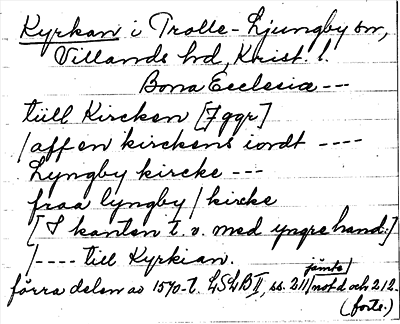 Kyrkan i Trolle-Ljungby sn,
Villands hd, Krist. l.
Bona Ecclesia ---
tüll Kircken [7 ggr]
/aff en kirckens iordt ----
Lyngby kircke ---
fraa lyngby / kircke
[I kanten t. v. med yngre hand:]
/---- till Kyrkian.
förra delen av 1570-t. LSLB II, ss. 211 /jämte/ not d och 212.
(forts.)